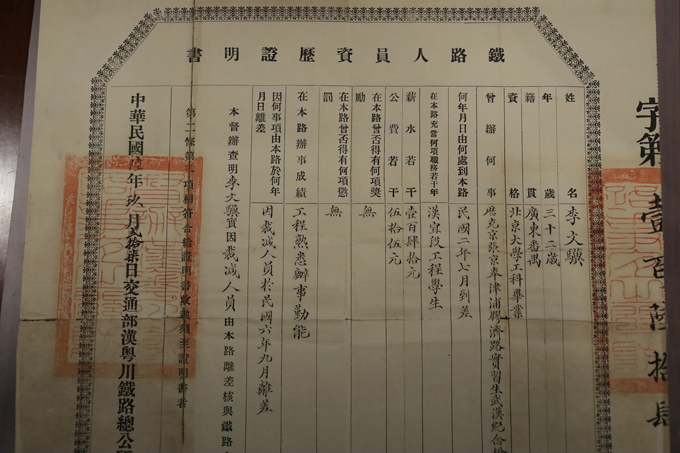 字第 壹百陸拾肆
鐵路人員資歷證明書
姓名 李文驥
年歲 三十二歲
籍貫 廣東番禺
資格 北京大學工科畢業
曾辦何事 歷充京張京奉津浦膠濟路實習生武漢紀合
何年月日由何處到本路 民國二年七月到差
在本路充當何項職務若干年 漢宜段工程學生
薪水若干 壹百肆拾元
公費若干 伍拾伍元
在本路曾否得有何項獎勵 無
在本路曾否得有何項懲罰 無
在本路辦事成績 工程熟悉辦事勤能
因何事項由本路於何年月日離差 因裁減人員於民國六年九月離差
本督辦查明李文驥實因裁減人員由本路離差核與鐵路
第二條第一項相符合給證明書
須至證明書者
中華民國 年玖月貳拾柒日交通部漢粵川鐵路總公